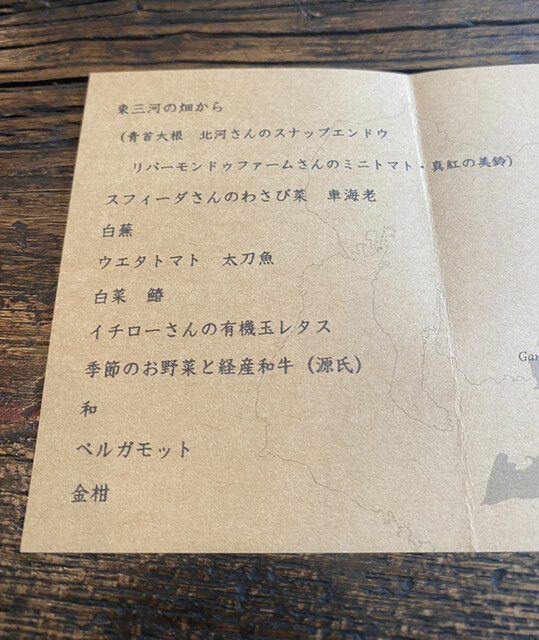 東三河の畑から
(青首大根　北河さんのスナップエンドウ
リバーモンドゥファームさんのミニトマト・真紅の美鈴)
スフィーダさんのわさび菜　車海老
白蕪
ウエタトマト　太刀魚
白菜　鰆
イチローさんの有機玉レタス
季節のお野菜と経産和牛 (源氏)
和
ベルガモット
金柑